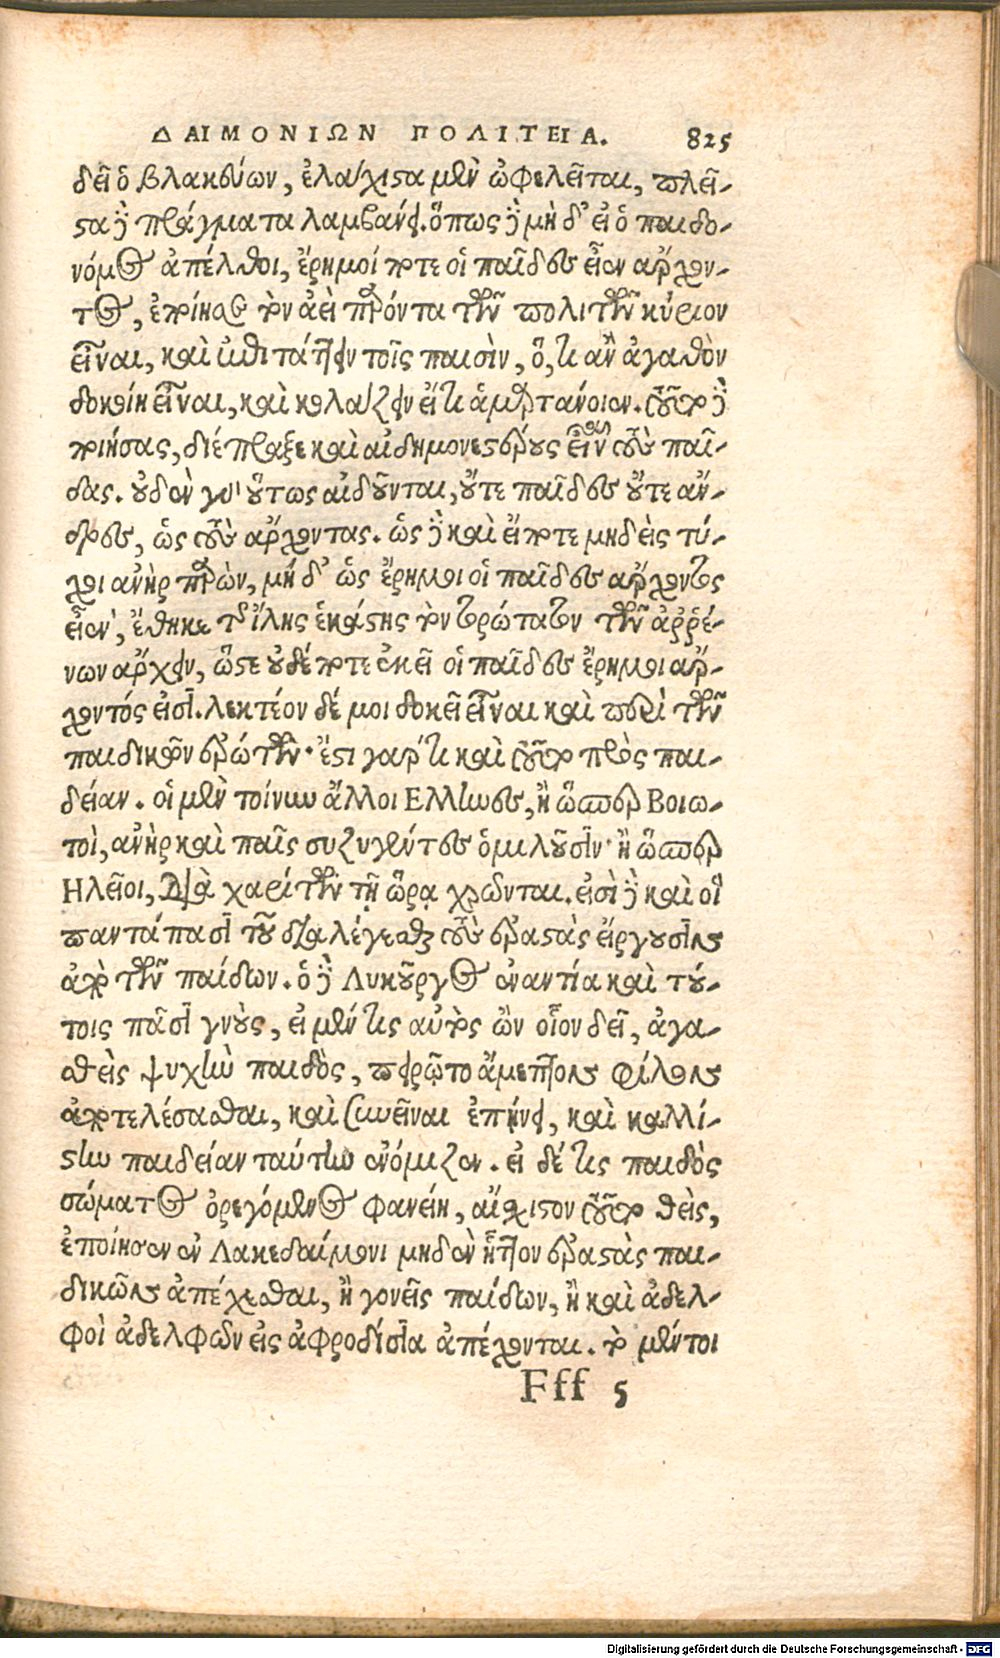 ΔΑΙΜΟΝΙΩΝ ΠΟΛΙΤΕΙΑ. 825
δεῖ ὁ βλακεύων, ἐλάχιστα μὲν ὠφελεῖται, πλεῖ-
στα δὲ πράγματα λαμβάνει. ὅπως δὲ μὴ δ' εἰ ὁ παιδο-
νόμος ἀπέλθοι, ἔρημοί ποτε οἱ παῖδες εἶεν ἄρχον-
τος, ἐποίησε τὸν ἀεὶ παρόντα τῶν πολιτῶν κύριον
εἶναι, καὶ ἐπιτάττειν τοῖς παισὶν, ὅ,τι ἂν ἀγαθὸν
δοκοίη εἶναι, καὶ κολάζειν εἴ τι ἁμαρτάνοιεν. τοῦτο δὲ
ποιήσας, διέπραξε καὶ αἰδημονεστέρους εἶναι τοὺς παῖ-
δας. οὐδὲν γὰρ οὕτως αἰδοῦνται, οὔτε παῖδες οὔτε ἄν-
δρες, ὡς τοὺς ἄρχοντας. ὡς δὲ καὶ εἴ ποτε μηδεὶς τύ-
χοι ἀνὴρ παρὼν, μή δ' ὡς ἔρημοι οἱ παῖδες ἄρχοντος
εἶεν, ἔθηκε τῆς ἴλης ἑκάστης τὸν τορώτατον τῶν ἀῤῥέ-
νων ἄρχειν, ὥστε οὐδέποτε ἐκεῖ οἱ παῖδες ἔρημοι ἄρ-
χοντός εἰσι. λεκτέον δέ μοι δοκεῖ εἶναι καὶ περὶ τῶν
παιδικῶν ἐρώτων· ἔστι γάρ τι καὶ τοῦτο πρὸς παι-
δείαν. οἱ μὲν τοίνυν ἄλλοι Ελληνες, ἢ ὥσπερ Βοιω-
τοὶ, ἀνὴρ καὶ παῖς συζυγέντες ὁμιλοῦσιν· ἢ ὥσπερ
Ηλεῖοι, διὰ χαρίτων τῇ ὥρᾳ χρῶνται. εἰσὶ δὲ καὶ οἳ
παντάπασι τοῦ διαλέγεσθαι τοὺς ἐραστὰς εἴργουσιν
ἀπὸ τῶν παίδων. ὁ δὲ Λυκοῦργος ἐναντία καὶ τού-
τοις πᾶσι γνοὺς, εἰ μέν τις αὐτὸς ὢν οἷον δεῖ, ἀγα-
σθεὶς ψυχὴν παιδὸς, πειρῷτο ἄμεπτον φίλον
ἀποτελέσασθαι, καὶ συνεῖναι ἐπῄνει, καὶ καλλί-
στην παιδείαν ταύτην ἐνόμιζεν. εἰ δέ τις παιδὸς
σώματος ὀρεγόμενος φανείη, αἴσχιστον τοῦτο θεὶς,
ἐποίησεν ἐν Λακεδαίμονι μηδὲν ἧττον ἐραστὰς παι-
δικῶν ἀπέχεσθαι, ἢ γονεῖς παίδων, ἢ καὶ ἀδελ-
φοὶ ἀδελφῶν εἰς ἀφροδίσια ἀπέχονται. τὸ μέντοι
Fff 5
Digitalisierung gefördert durch die Deutsche Forschungsgemeinschaft - DFG